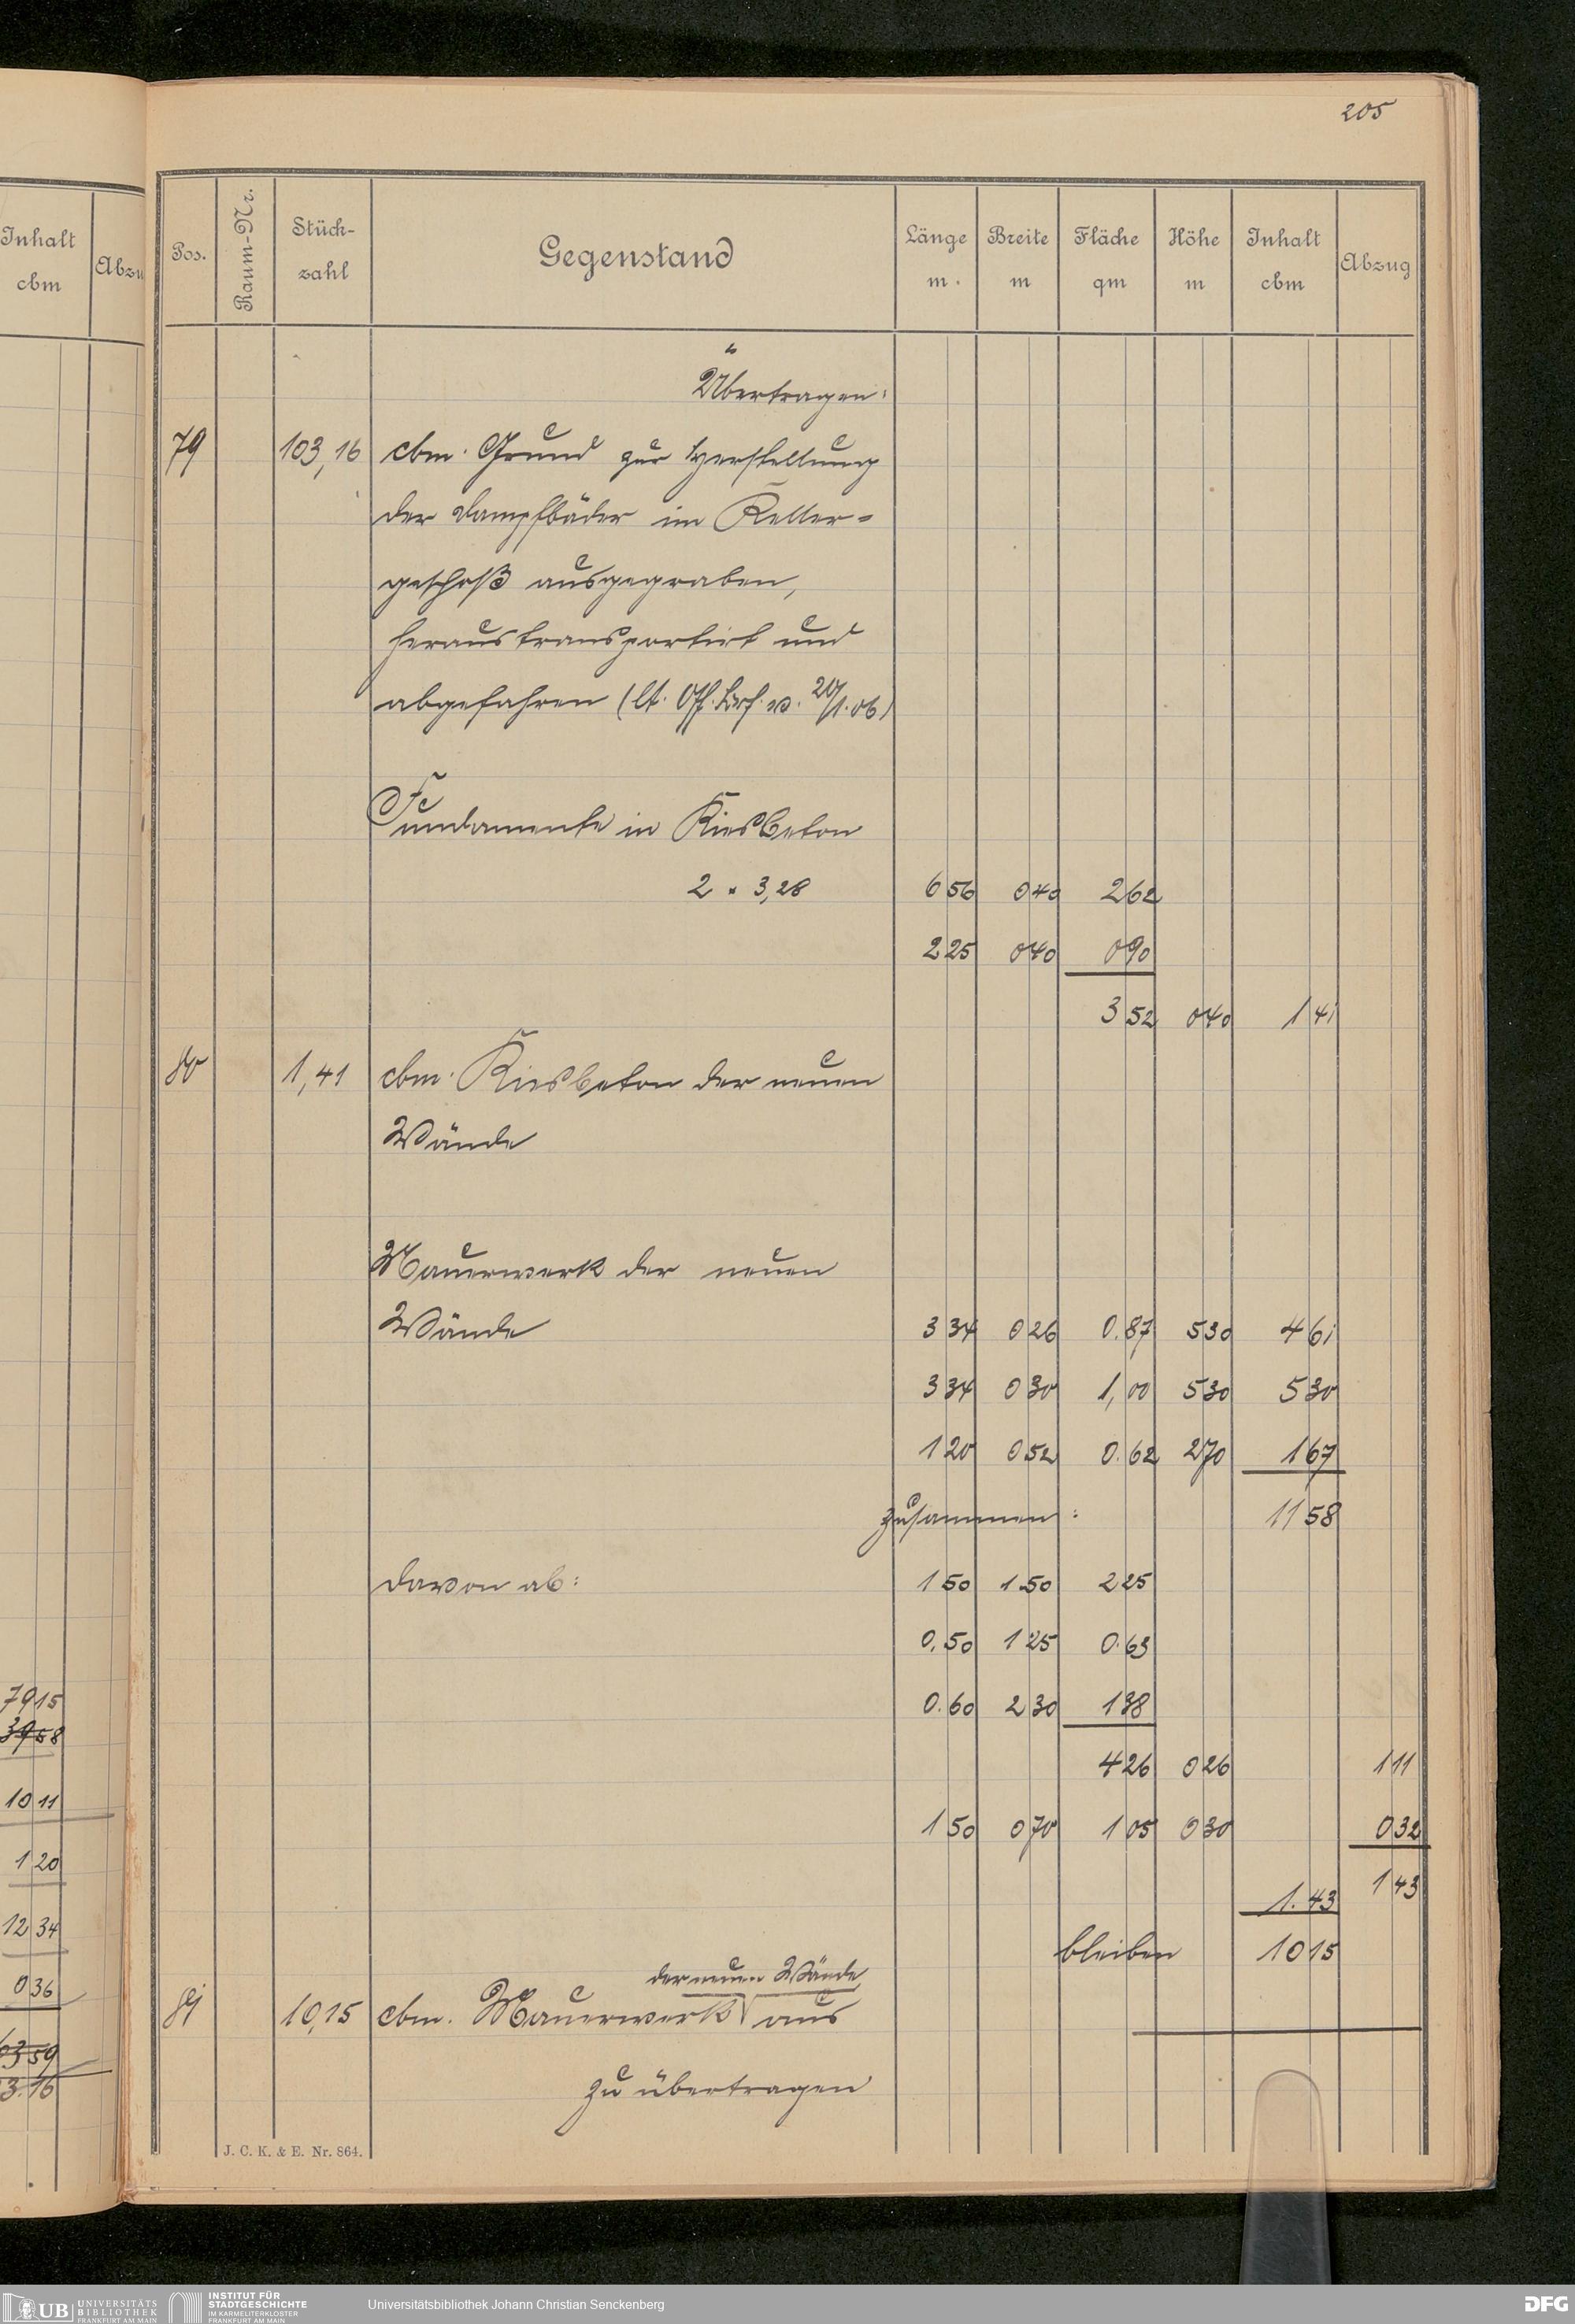 205
Inhalt
cbm
Abzu
Pos.
Raum-Nr.
Stück-
zahl
Gegenstand
Länge
m.
Breite
m
Fläche
qm
Höhe
m
Inhalt
cbm
Abzug
Übertragen:
79 103,16 cbm. Grund zur Herstellung
der Dampfbäder im Keller-
geschoß ausgegraben,
heraustransportirt und
abgefahren (lt. Off. v. 20/1.06)
Fundamente in Kiesbeton
2 × 3,28 6 56 0 40 2 62
2 25 0 40 0 90
3 52 0 40 1 41
80 1,41 cbm. Kiesbeton der neuen
Wände
Mauerwerk der neuen
Wände 3 34 0 26 0.87 5 30 4 61
3 34 0 30 1,00 5 30 5 30
1 20 0 52 0.62 2 70 1 67
zusammen: 11 58
davon ab: 1 50 1 50 2 25
0.50 1 25 0.63
0.60 2 30 1 38
4 26 0 26 1 11
1 50 0 70 1 05 0 30 0 32
1.43 1 43
bleiben 10 15
der neuen Wände
81 10,15 cbm. Mauerwerk aus
zu übertragen
79 15
39 58
10 11
1 20
12 34
0 36
63 59
3.16
J. C. K. & E. Nr. 864.
UB UNIVERSITÄTS
BIBLIOTHEK
FRANKFURT AM MAIN
INSTITUT FÜR
STADTGESCHICHTE
IM KARMELITERKLOSTER
FRANKFURT AM MAIN
Universitätsbibliothek Johann Christian Senckenberg
DFG